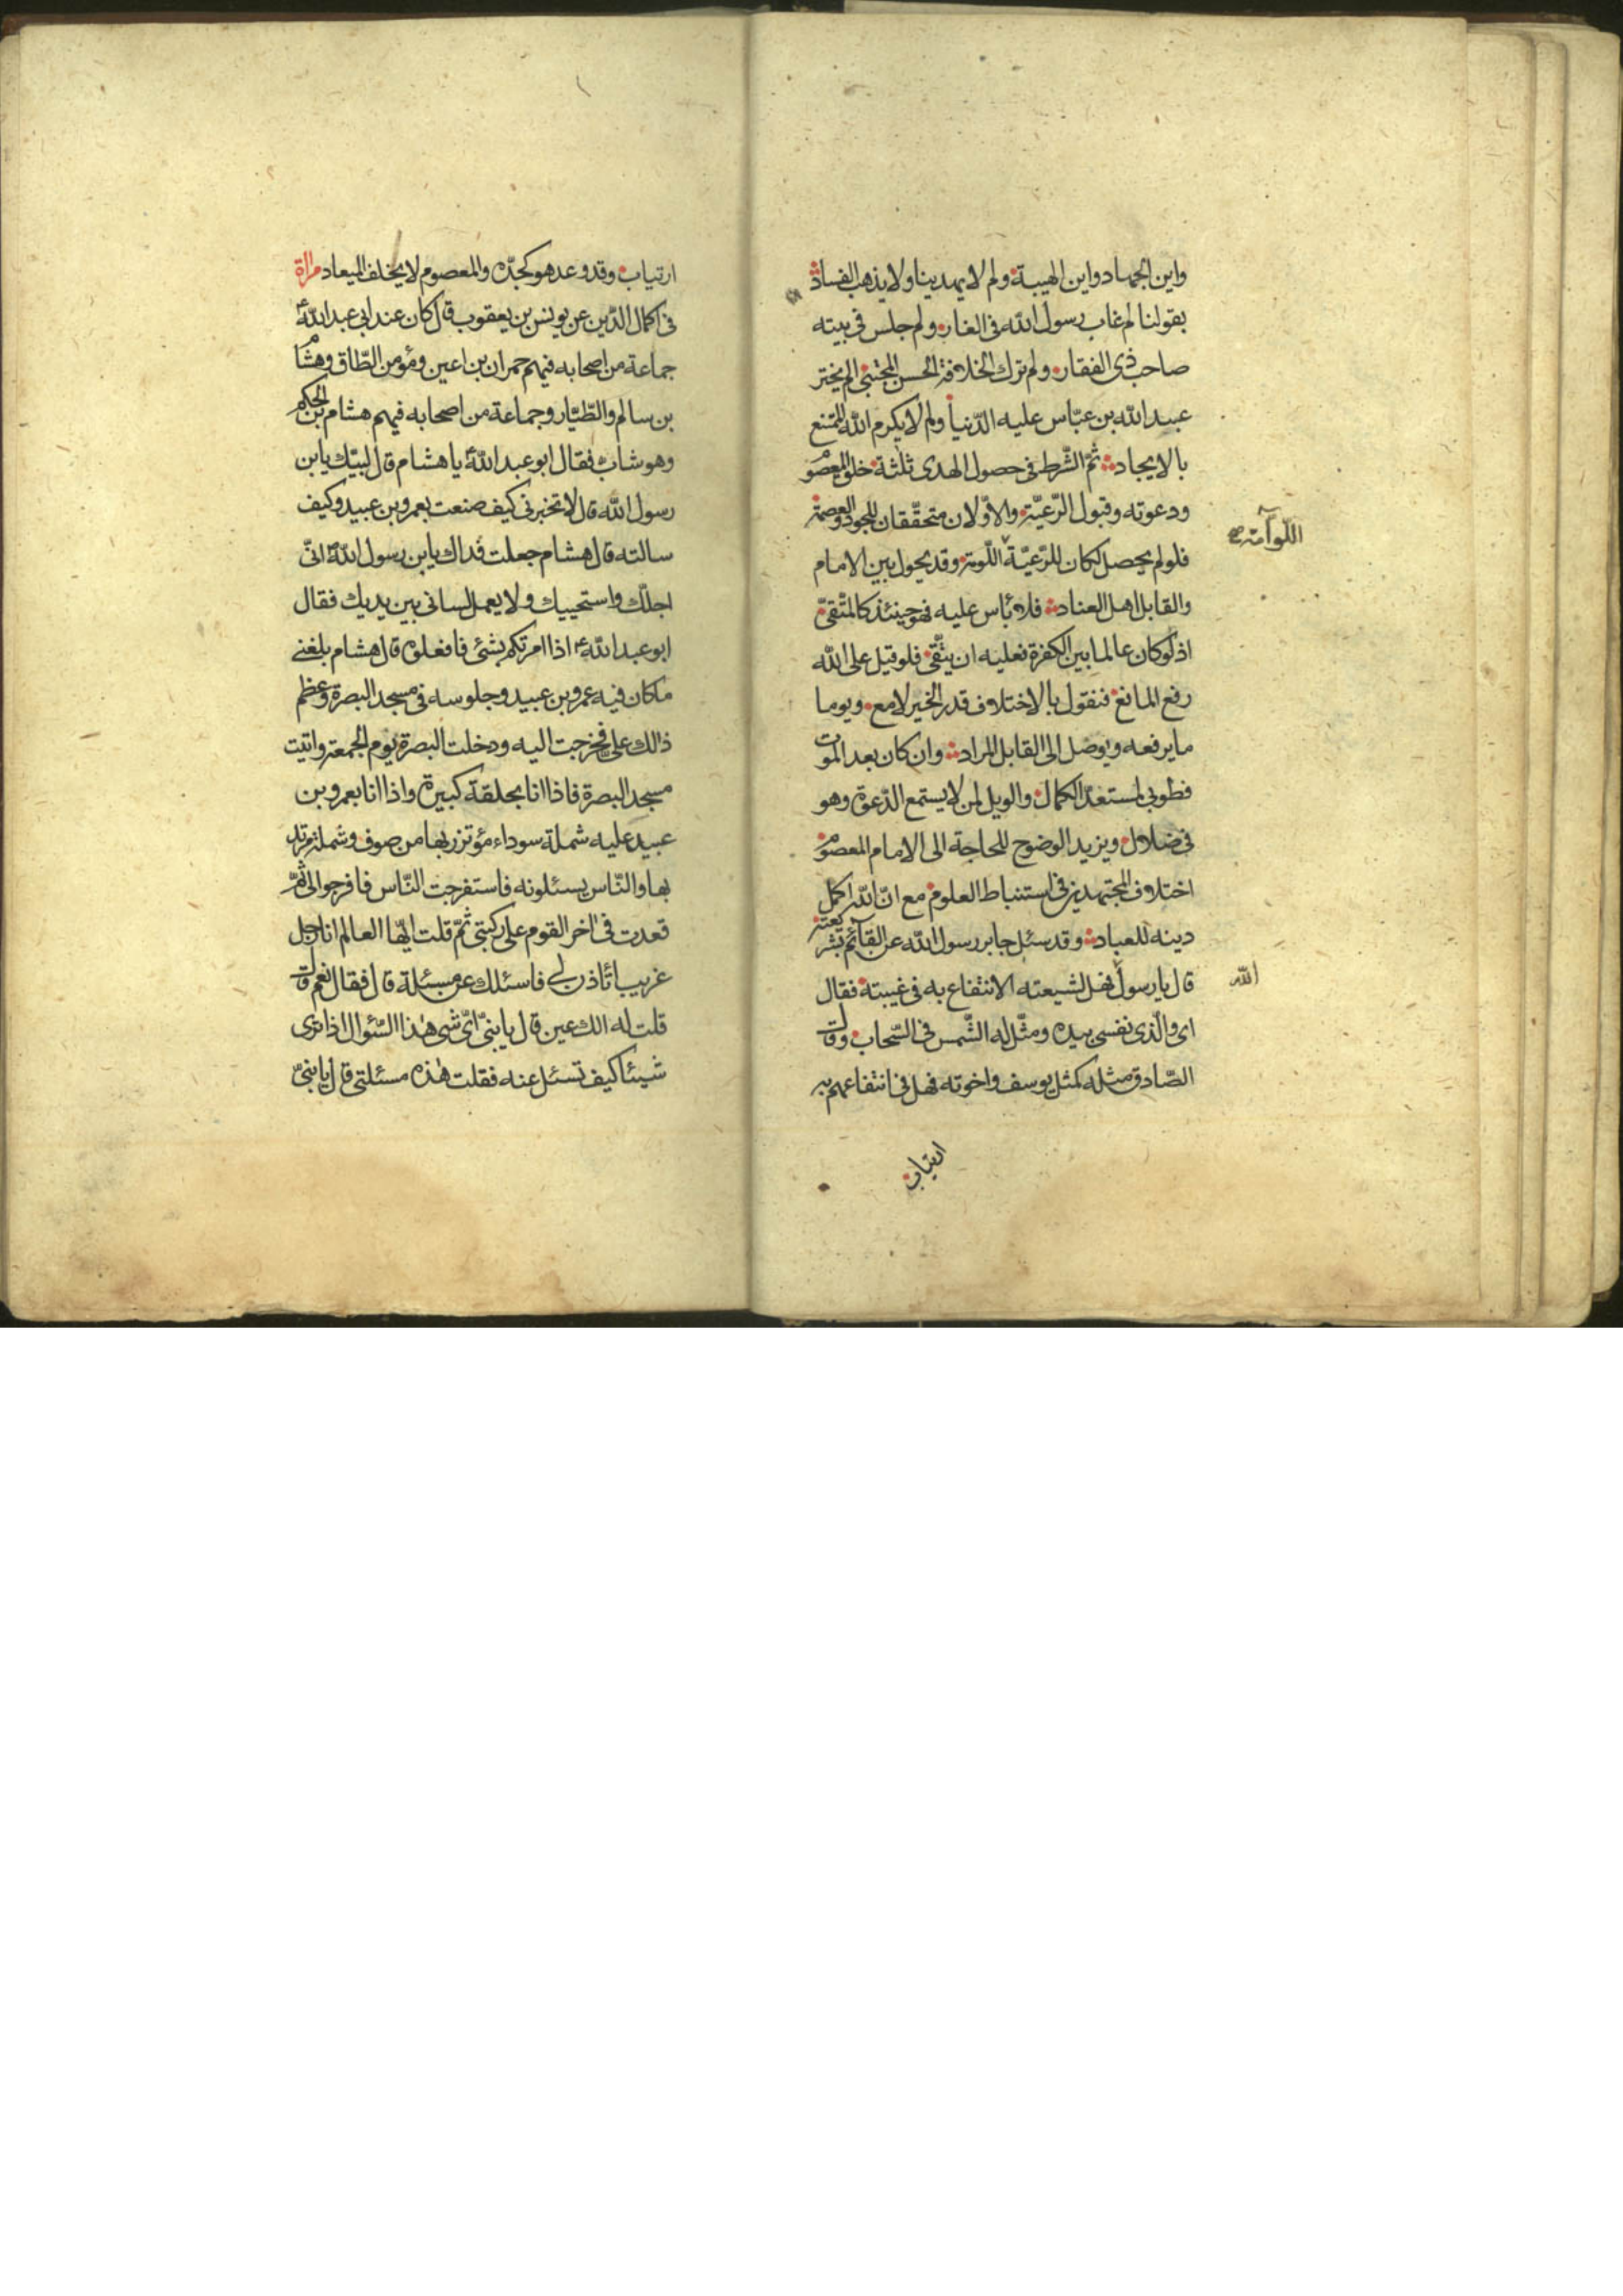 واين الجهاد واين الهيبة ولم لا يهدينا ولا يذهب الفساد
بقولنا لم غاب رسول الله فى الغار ولم جلس فى بيته
صاحب ذى الفقار ولم ترك الخلافة الحسن المجتبى الم يختر
عبد الله بن عبّاس عليه الدّنيا ولم لا يكرم الله الممتنع
بالايجاد ثمّ الشّرط فى حصول الهدى ثلثة خلق المعصوم
ودعوته وقبول الرّعيّة والاوّلان متحقّقان للجود والعصمة
فلو لم يحصل لكان للرّعيّة اللّومة وقد يحول بين الامام
اللّوآمة
والقابل اهل العناد فلا بأس عليه فهو حينئذ كالمتّقىّ
اذ لو كان عالما بين الكفرة فعليه ان يتّقى فلو قيل على الله
رفع المانع فنقول بالاختلاف قدر الخير لامع ويوما
ما يرفعه ويوصل الى القابل المراد وان كان بعد الموت
فطوبى لمستعدّ الكمال والويل لمن لا يستمع الدّعوة وهو
فى ضلال ويزيد الوضوح للحاجة الى الامام المعصوم
اختلاف المجتهدين فى استنباط العلوم مع انّ الله اكمل
دينه للعباد وقد سئل جابر رسول الله عن القآئم بشريعته
قال يا رسول فهل لشيعته الانتفاع به فى غيبته فقال
الله
اى والّذى نفسى بيده ومثّل له الشّمس فى السّحاب وقال
الصّادق مثله كمثل يوسف واخوته فهل فى انتفاعهم به
ارتياب
ارتياب وقد وعد هو كجدّه والمعصوم لا يخلف الميعاد مرآة
فى اكمال الدّين عن يونس بن يعقوب قال كان عند ابى عبد الله
جماعة من اصحابه فيهم حمران بن اعين ومؤمن الطّاق وهشام
بن سالم والطّيّار وجماعة من اصحابه فيهم هشام بن الحكم
وهو شاب فقال ابو عبد الله يا هشام قال لبيّك يا بن
رسول الله قال الا تخبرنى كيف صنعت بعمرو بن عبيد وكيف
سالته قال هشام جعلت فداك يا بن رسول الله انّى
اجلّك واستحييك ولا يعمل لسانى بين يديك فقال
ابو عبد الله اذا امرتكم بشئ فافعلوه قال هشام بلغنى
ما كان فيه عمرو بن عبيد وجلوسه فى مسجد البصرة وعظم
ذالك علىّ فخرجت اليه ودخلت البصرة يوم الجمعة واتيت
مسجد البصرة فاذا انا بحلقة كبيرة واذا انا بعمرو بن
عبيد عليه شملة سوداء مؤتزر بها من صوف وشملة مرتد
بها والنّاس يسئلونه فاستفرجت النّاس فافرجوا لى ثمّ
قعدت فى اخر القوم على ركبتى ثمّ قلت ايّها العالم انا رجل
غريب اتأذن لى فاسئلك عن مسئلة قال فقال نعم قال
قلت له الك عين قال يا بنىّ اىّ شى هذا السّئوال اذا ترى
شيئا كيف تسئل عنه فقلت هذه مسئلتى قال يا بنىّ